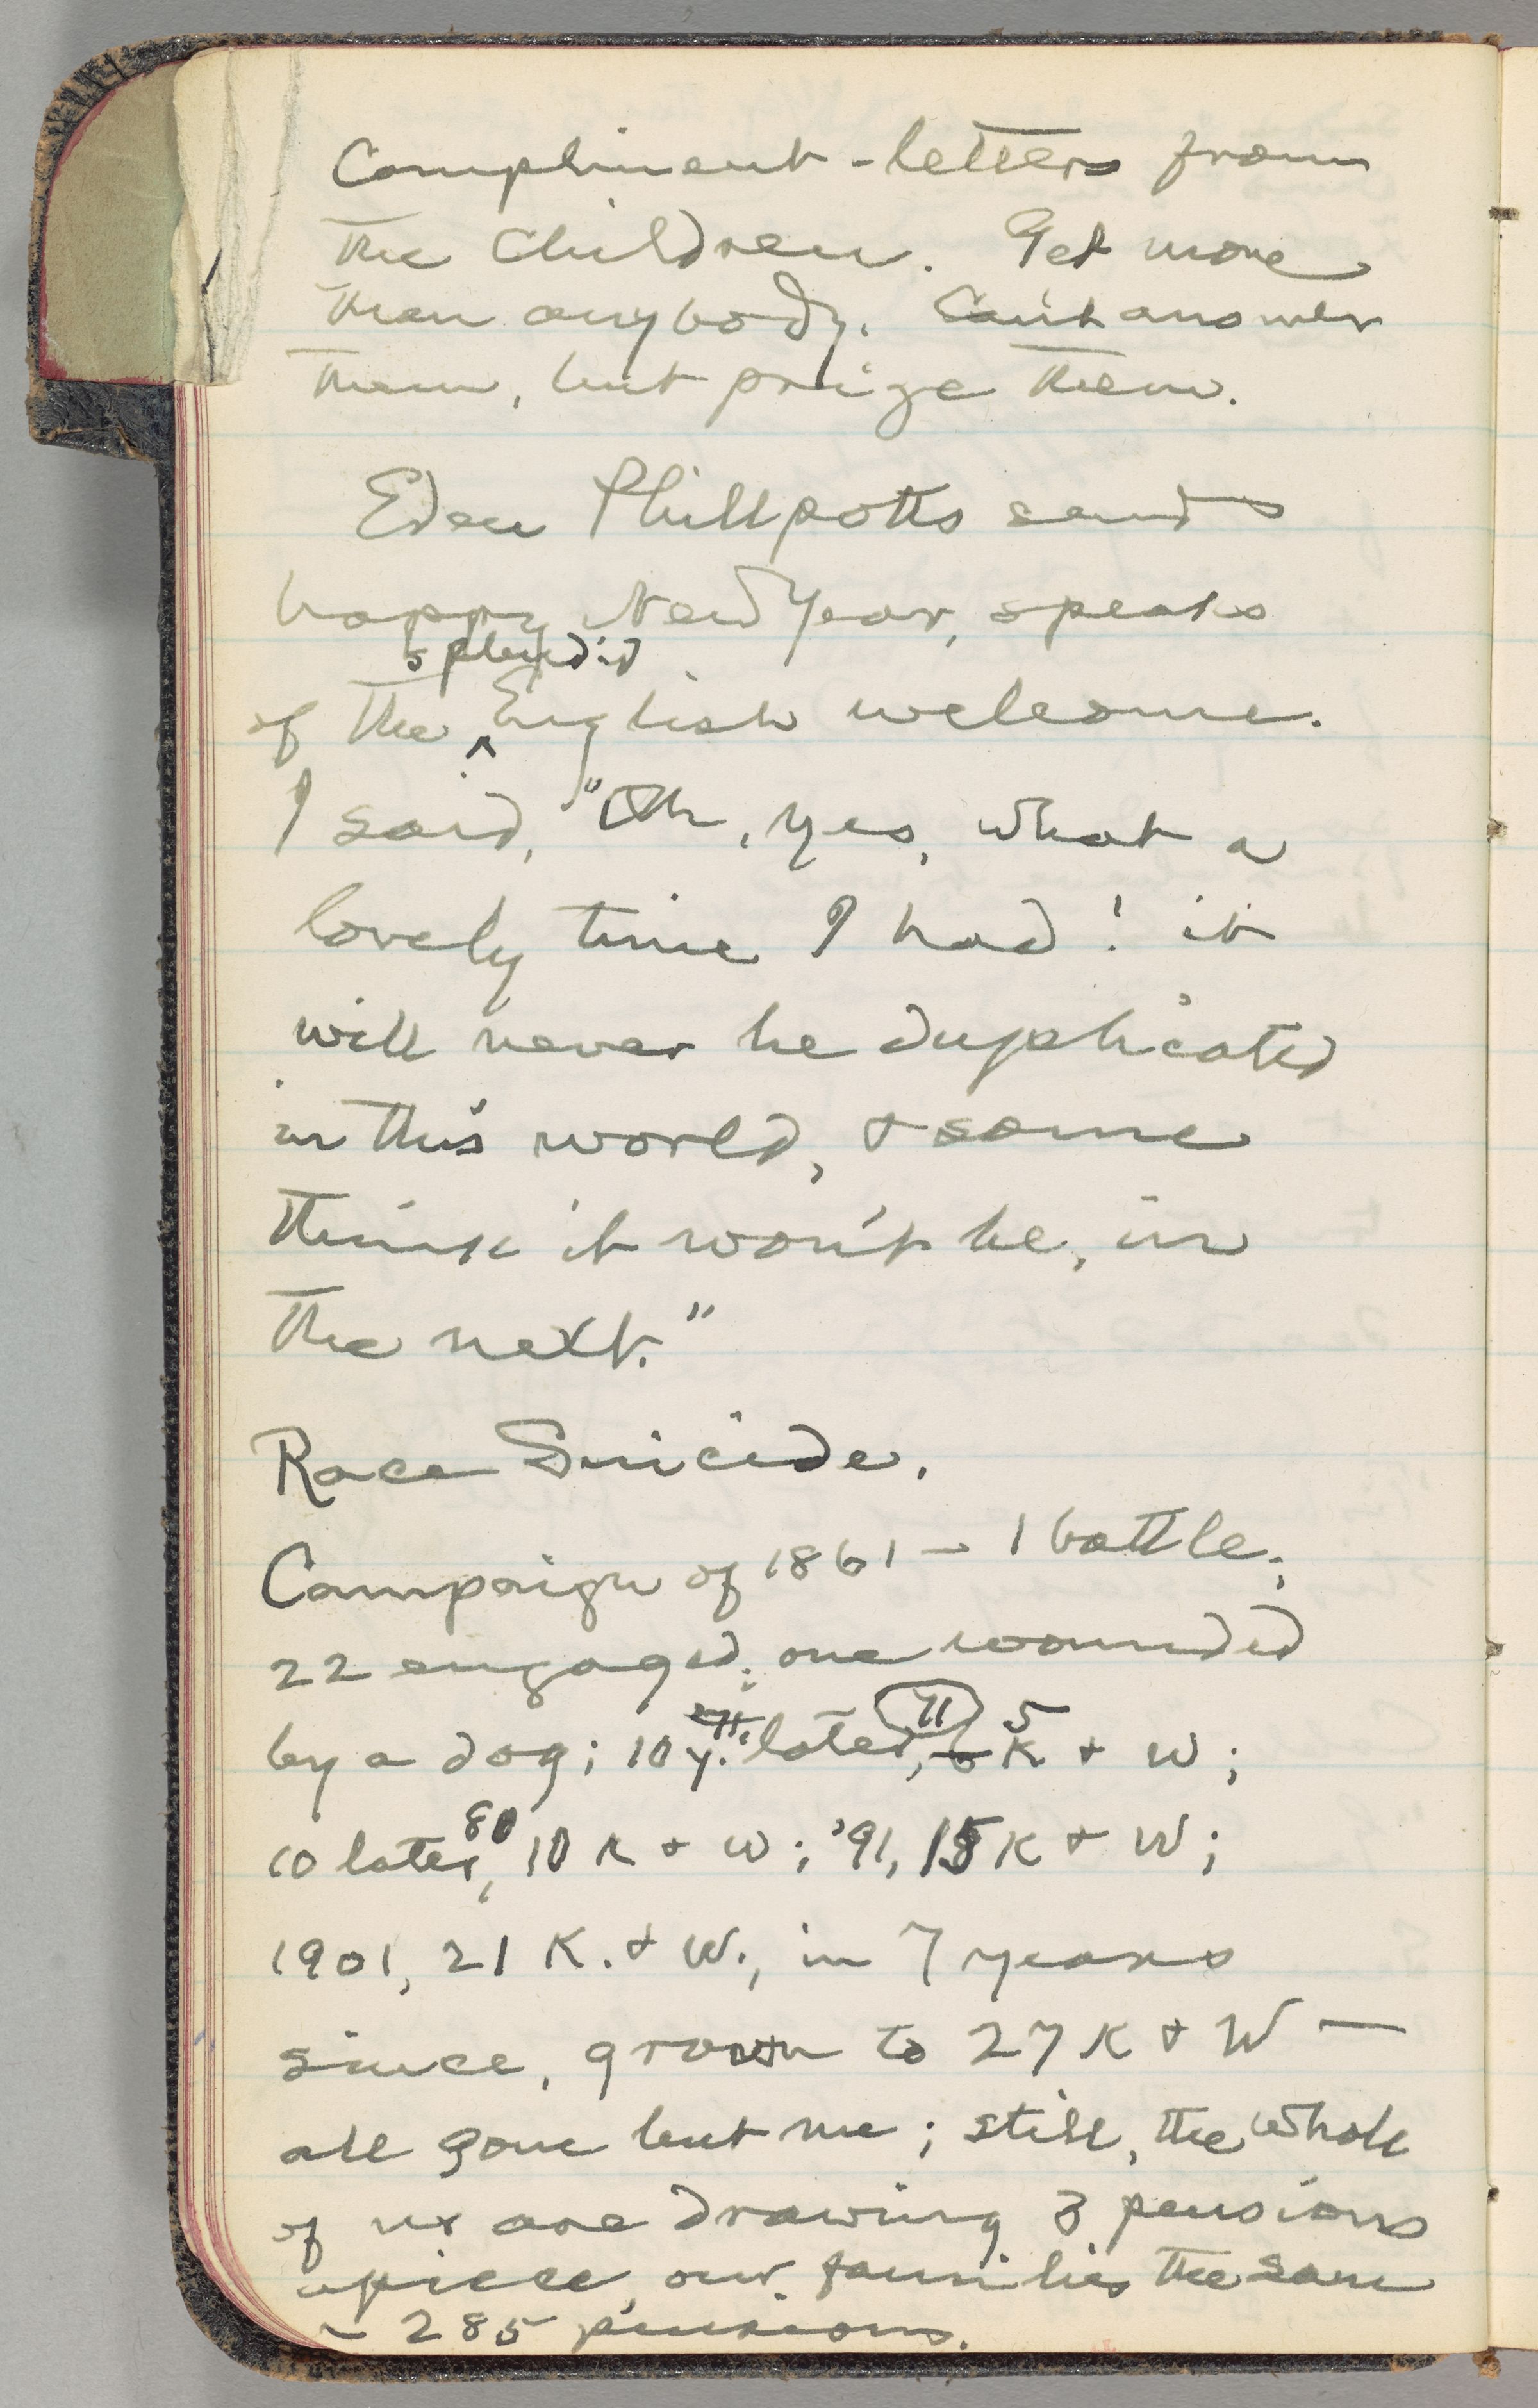 Compliment-letters from
the children. Get more
than anybody. Can't answer
them, but prize them.
Eden Phillpotts sends
happy New Year, speaks
splendid
of the ^ English welcome.
I said, "Oh, yes, what a
lovely time I had! it
will never be duplicated
in this world, & some
think it won't be, in
the next."
Race Suicide.
Campaign of 1861 — 1 battle;
22 engaged; one wounded
71 5
by a dog; 10 y. later, 6 K & W;
80
10 later, 10 K & W; '91, 15 K & W;
1901, 21 K. & W., in 7 years
since, grown to 27 K & W —
all gone but me; still, the whole
of us are drawing 3 pensions
apiece, our families the same
— 285 pensions.